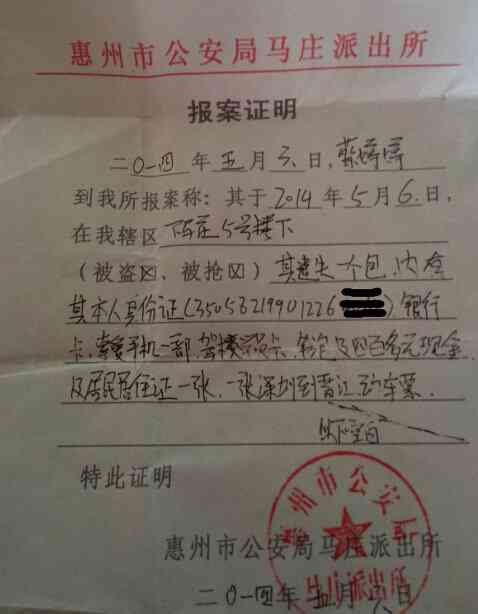 惠州市公安局马庄派出所
报案证明
二〇一四年五月六日,
到我所报案称:其于2014年5月6日,
在我辖区 5号楼下
(被盗☒、被抢☒)其遗失一个包,内含
其本人身份证(35058219901226 ),银行
卡, 手机一部, 及四百多元现金,
及居民居住证一张,一张深圳到晋江动车票.
以下空白
特此证明
惠州市公安局马庄派出所
惠州市公安局马庄派出所
二〇一四年五月六日